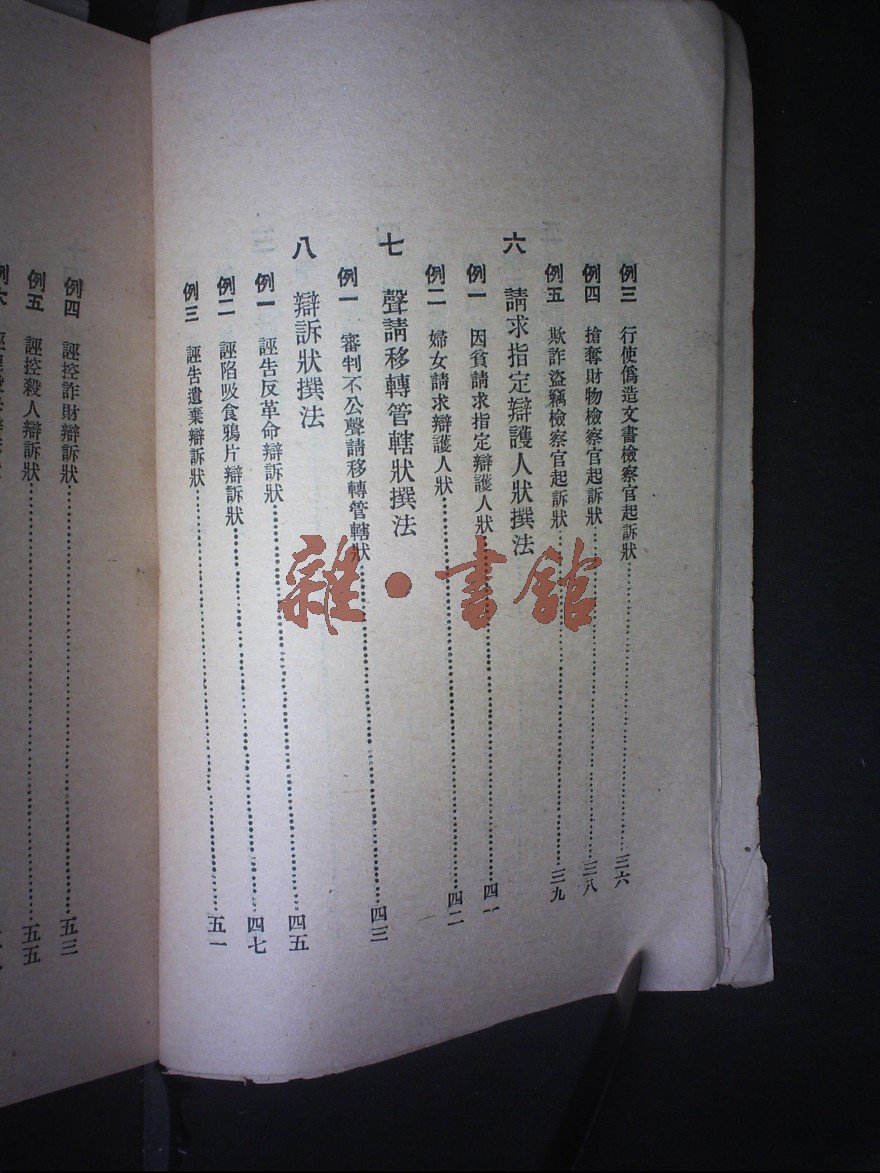 例三　行使僞造文書檢察官起訴狀……三六
例四　搶奪財物檢察官起訴狀……三八
例五　欺詐盜竊檢察官起訴狀……三九
六　請求指定辯護人狀撰法
例一　因貧請求指定辯護人狀……四一
例二　婦女請求辯護人狀……四二
七　聲請移轉管轄狀撰法
例一　審判不公聲請移轉管轄狀……四三
八　辯訴狀撰法
例一　誣告反革命辯訴狀……四五
例二　誣陷吸食鴉片辯訴狀……四七
例三　誣告遺棄辯訴狀……五一
例四　誣控詐財辯訴狀……五三
例五　誣控殺人辯訴狀……五五
例六
雜·書館